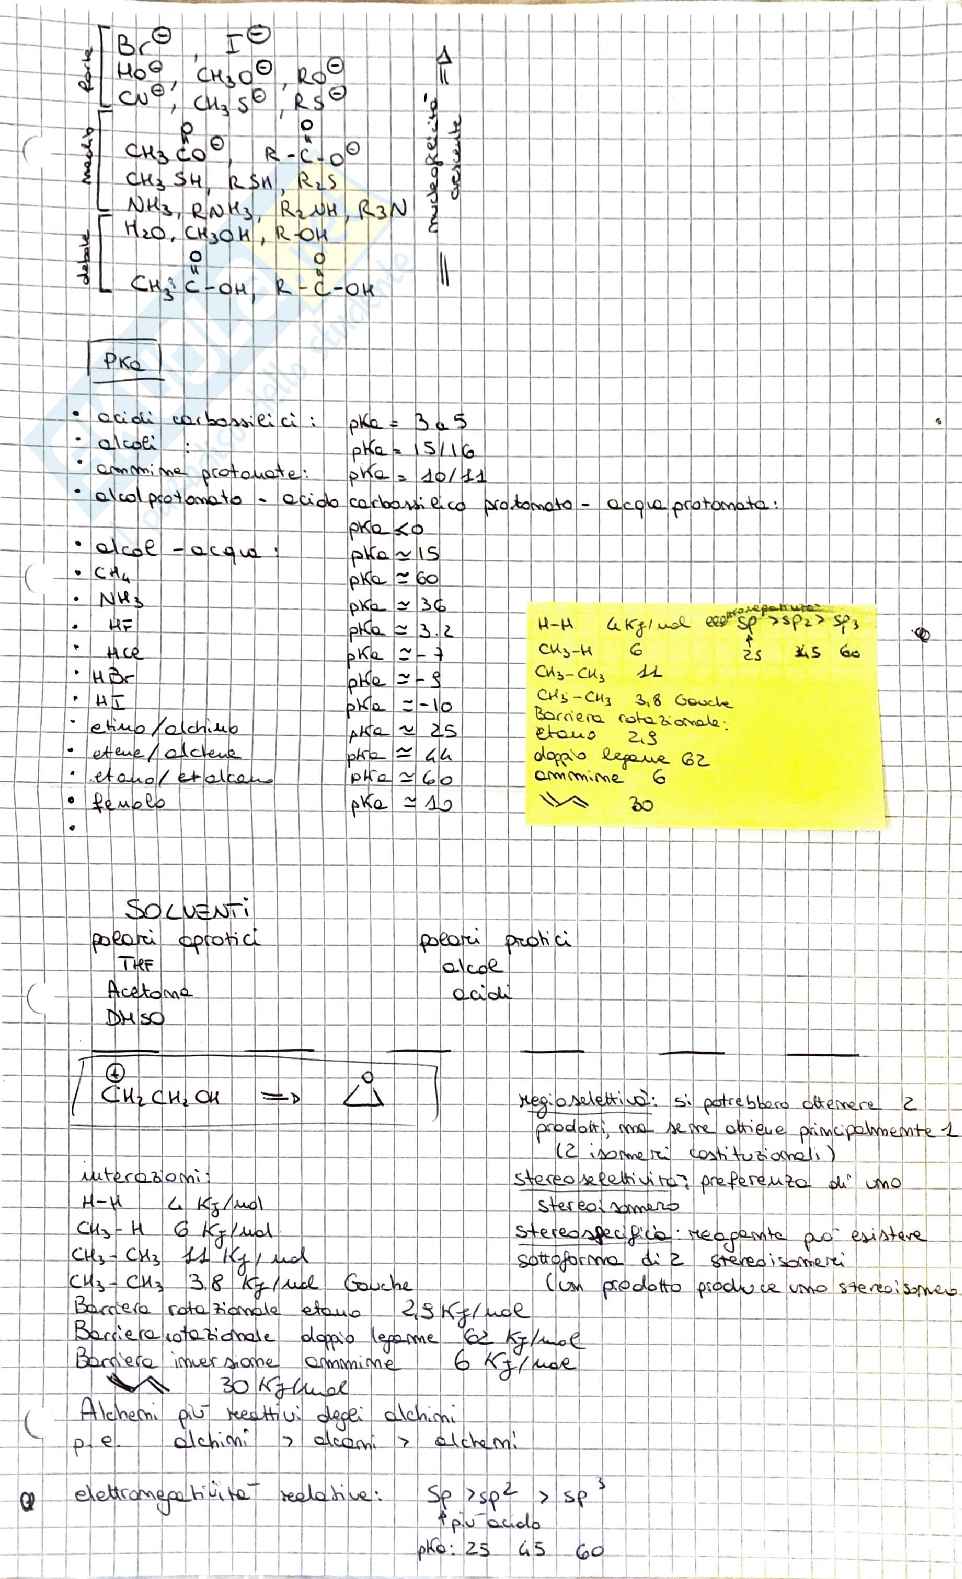 forte
Br⊖, I⊖
HO⊖, CH3O⊖, RO⊖
CN⊖, CH3S⊖, RS⊖
medio
O O
CH3CO⊖, R-C-O⊖
CH3SH, RSH, R2S
NH3, RNH3, R2NH, R3N
debole
H2O, CH3OH, R-OH
O O
CH3-C-OH, R-C-OH
nucleofilicità
crescente
PKa
• acidi carbossilici: pKa = 3 a 5
• alcoli : pKa = 15/16
• ammine protonate: pKa = 10/11
• alcol protonato - acido carbossilico protonato - acqua protonata:
pKa <0
• alcol - acqua: pKa ≃ 15
• CH4 pKa ≃ 60
• NH3 pKa ≃ 36
• HF pKa ≃ 3.2
• HCl pKa ≃ -7
• HBr pKa ≃ -9
• HI pKa ≃ -10
• etino/alchino pKa ≃ 25
• etene/alchene pKa ≃ 44
• etano/ pKa ≃ 60
• fenolo pKa ≃ 10
•
H-H 4 KJ/mol sp > sp2 > sp3
CH3-H 6 25 45 60
CH3-CH3 11
CH3-CH3 3,8 Gauche
Barriera rotazionale:
etano 2,9
doppio legame 62
ammine 6
30
SOLVENTI
polari aprotici polari protici
THF alcol
Acetone acidi
DMSO
⊕
CH2CH2OH ⇒ O
regioselettività: si potrebbero ottenere 2
prodotti, ma se ne ottiene principalmente 1
(2 isomeri costituzionali)
stereoselettività: preferenza di uno
stereoisomero
stereospecifica: reagente può esistere
sottoforma di 2 stereoisomeri
(un prodotto produce uno stereoisomero
interazioni:
H-H 4 KJ/mol
CH3-H 6 KJ/mol
CH3-CH3 11 KJ/mol
CH3-CH3 3.8 KJ/mol Gauche
Barriera rotazionale etano 2,9 KJ/mol
Barriera rotazionale doppio legame 62 KJ/mol
Barriera inversione ammine 6 KJ/mol
30 KJ/mol
Alcheni più reattivi degli alchini
p.e. alchini > alcani > alcheni
elettronegatività relative: sp > sp2 > sp3
↑ più acido
pKa: 25 45 60